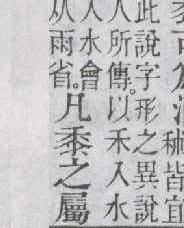 皆宜
此說字形之異說
人所傳。以禾入水
人水會
从雨省。凡黍之屬